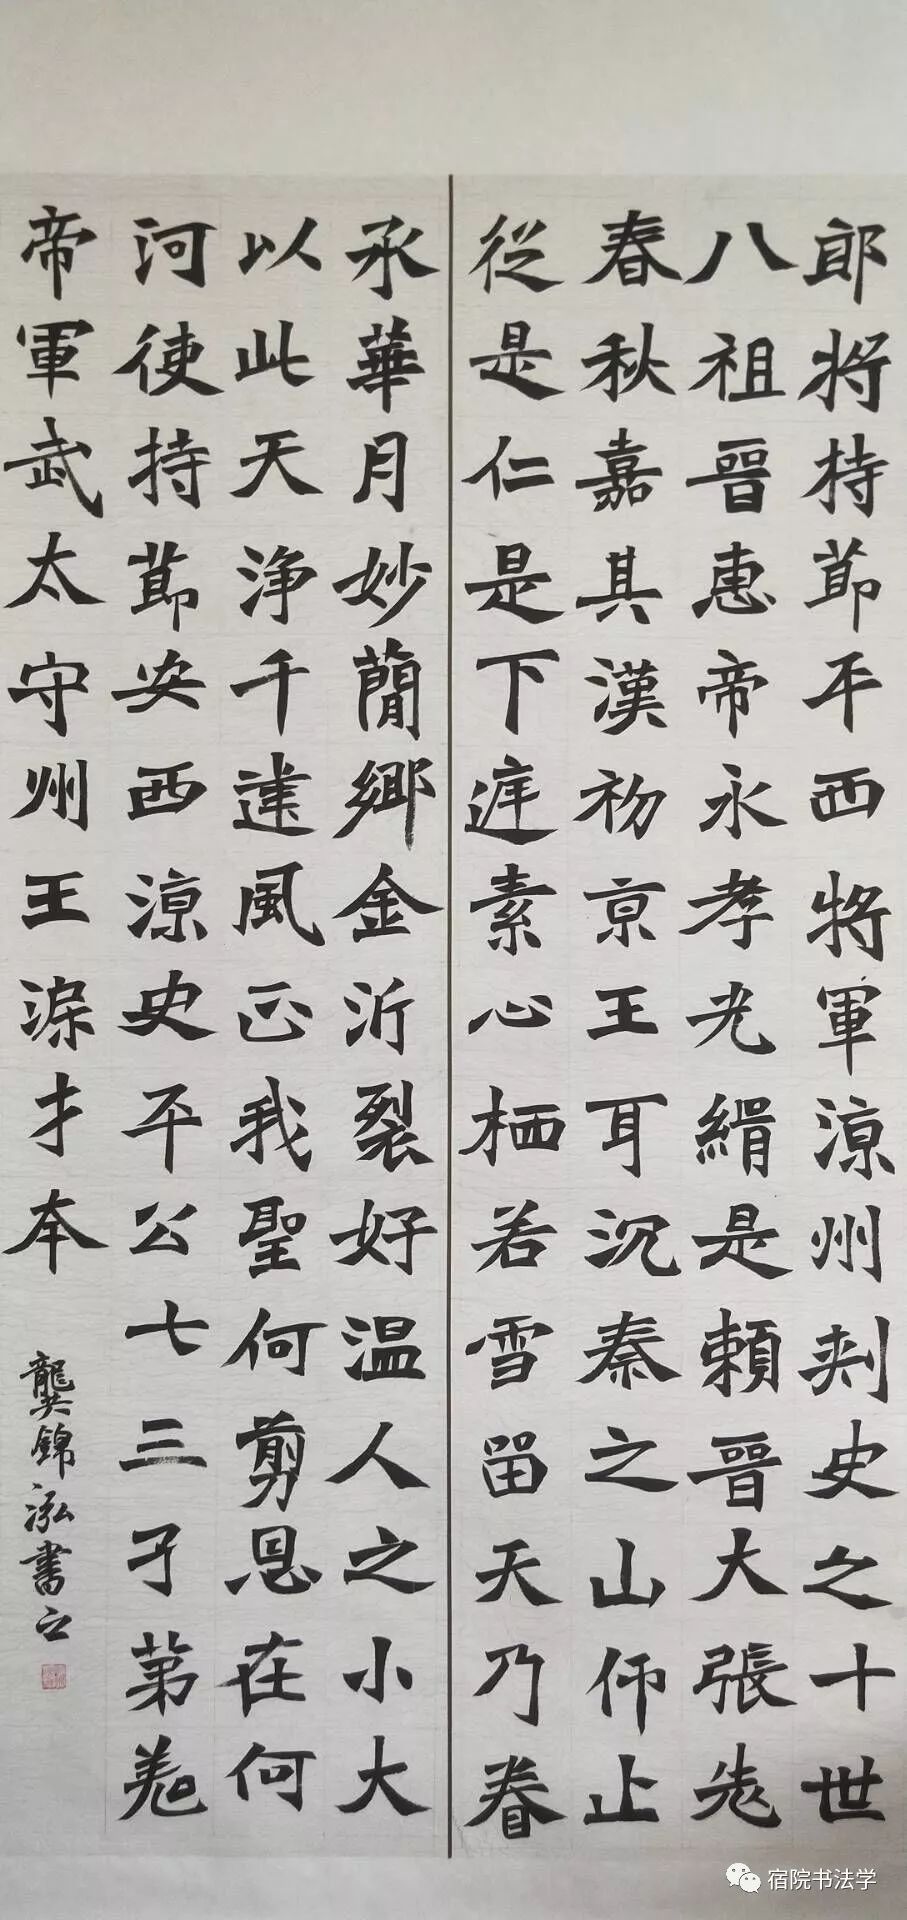 郎将持節平西将軍涼州刾史之十世
八祖晉惠帝永孝光緝是賴晉大張老
春秋嘉其漢初京王耳沉秦之山仰止
從是仁是下遅素心栖若雪留天乃眷
承華月妙蕳鄉金沂裂好温人之小大
以此天浄千建風正我聖何剪恩在何
河使持節安西涼史平公七三子第羌
帝軍武太守州王深才本
龔錦泓書之
宿院书法学